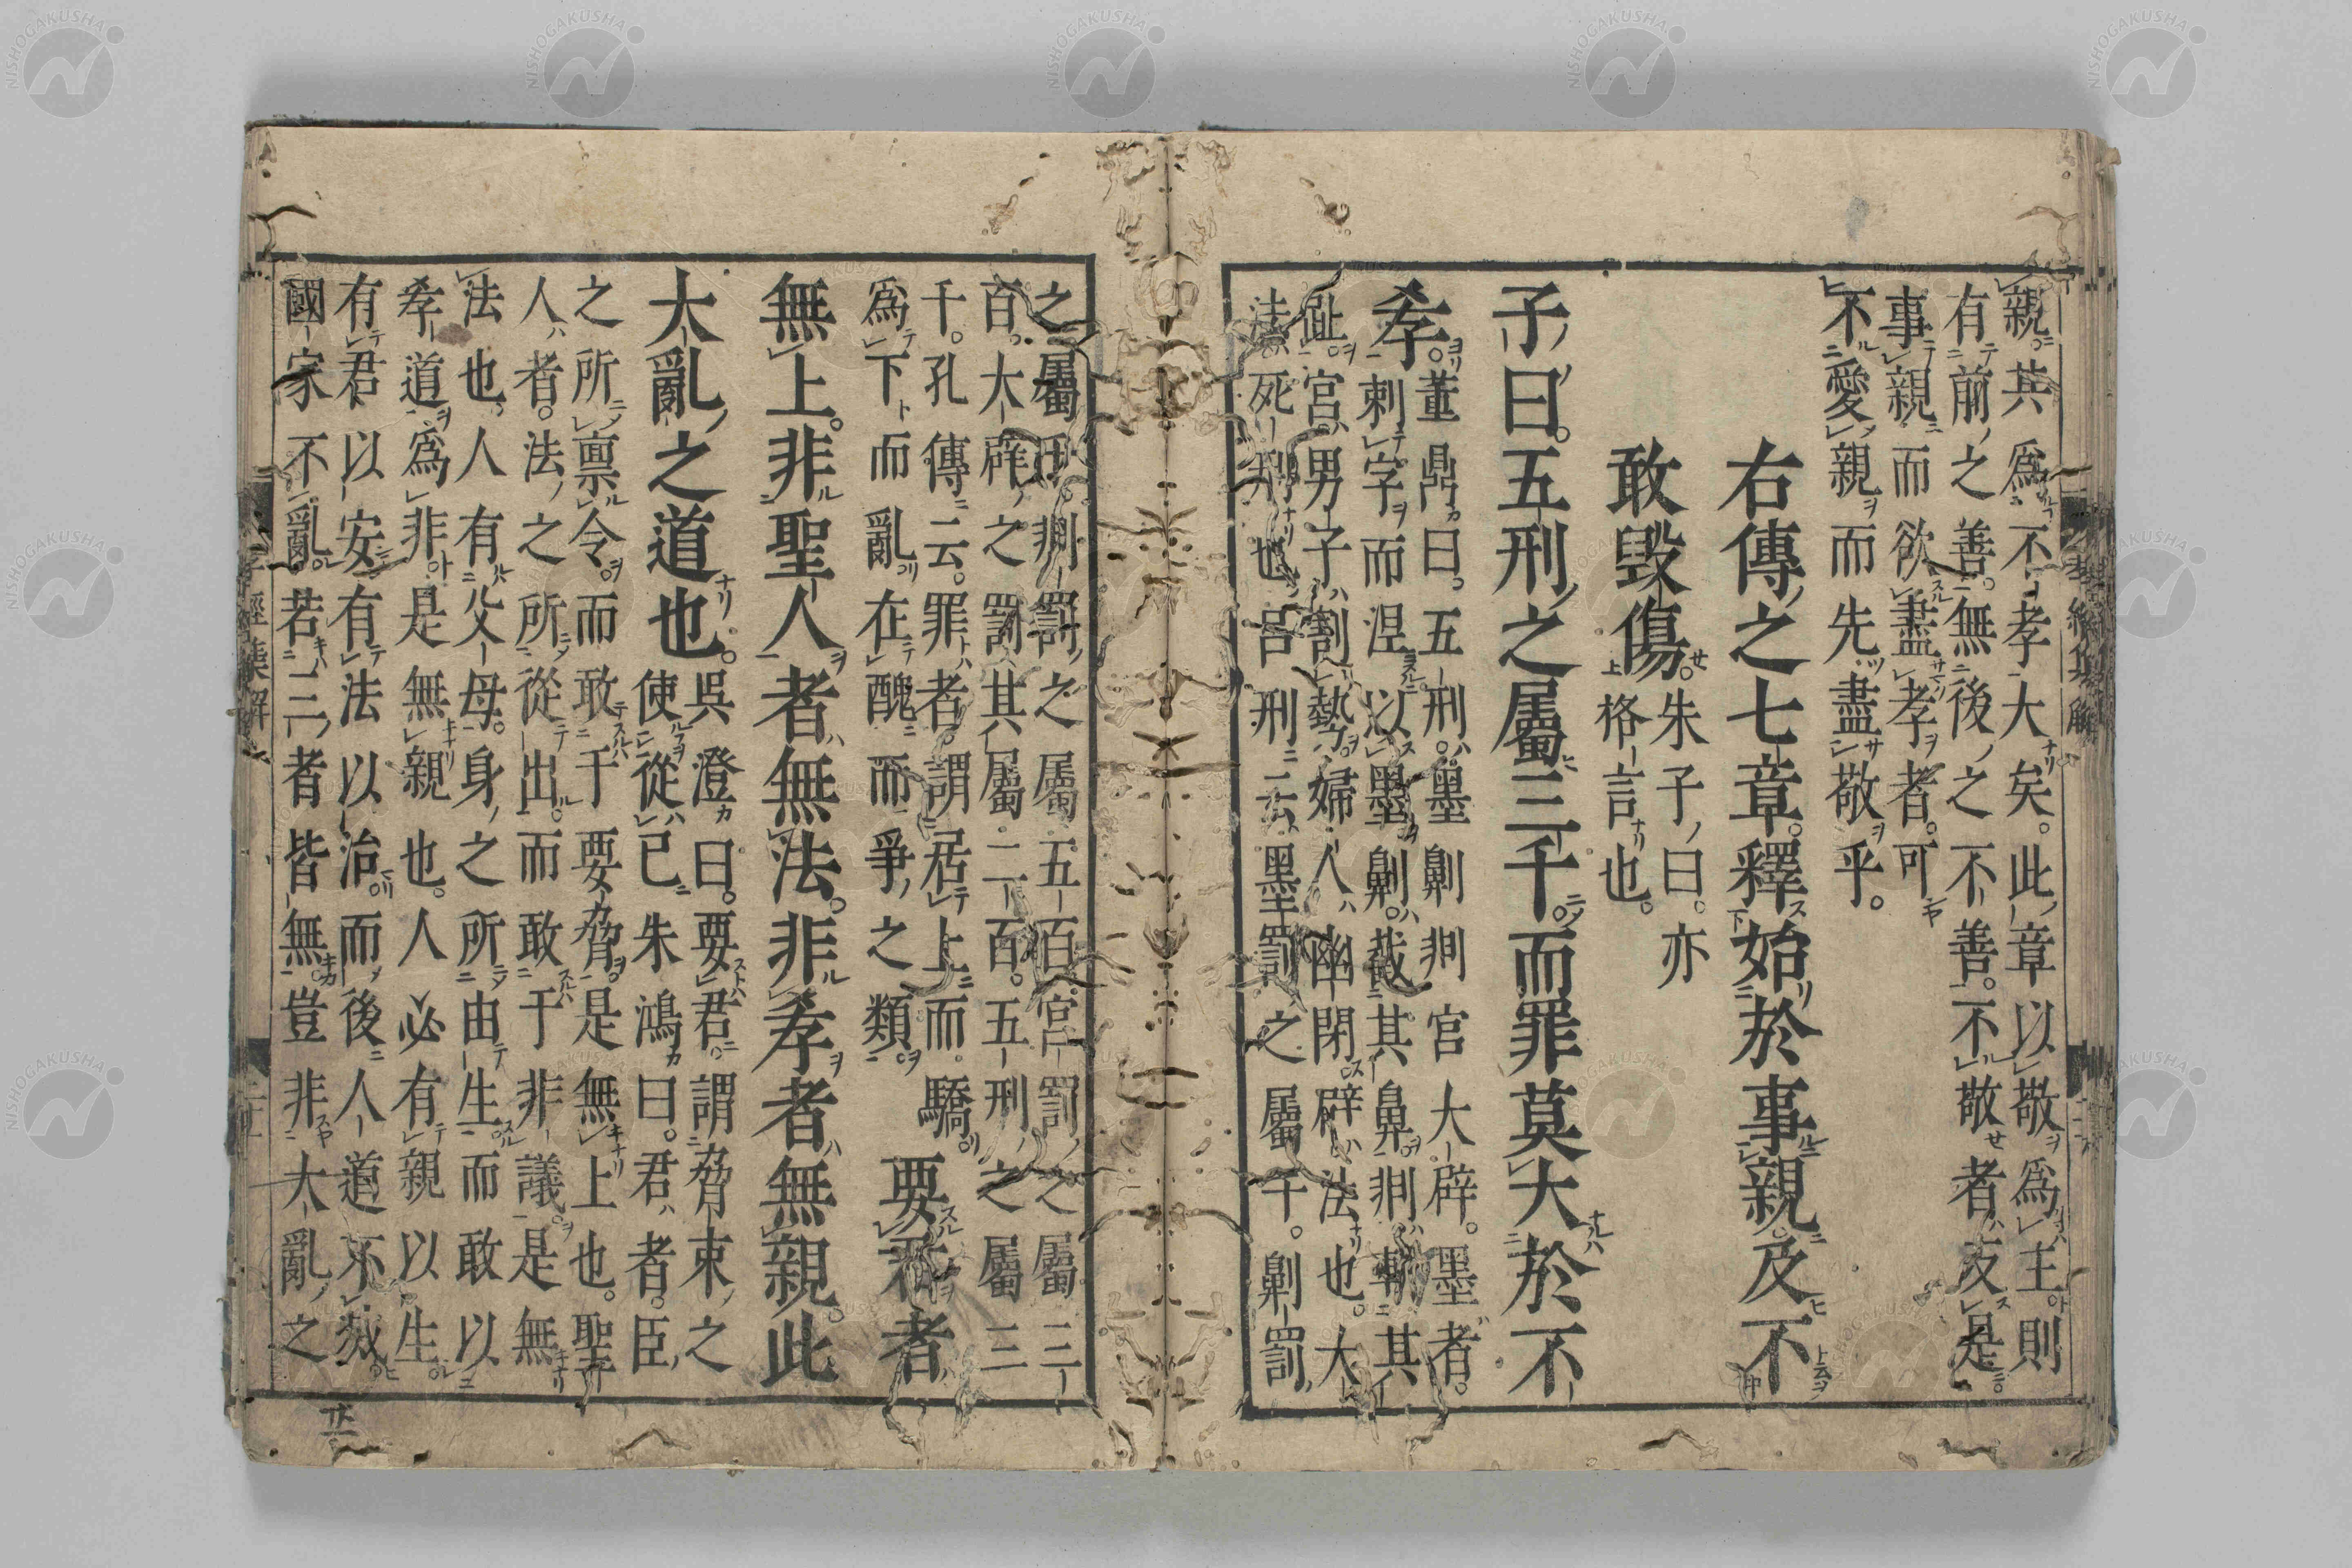 親其爲不孝大矣此章以敬爲主則
有前之善無後之不善不敬者反是
事親而欲盡孝者可
不愛親而先盡敬乎
右傳之七章釋始於事親及不
敢毀傷
朱子曰亦
格言也
子曰五刑之屬三千而罪莫大於不
孝
董鼎曰五刑墨劓剕宮大辟墨者
刺字而涅以墨劓截其鼻剕斬其
趾宮男子割勢婦人幽閉辟法也大
法死刑也呂刑云墨罰之屬千劓罰
之屬千剕罰之屬五百宮罰之屬三
百大辟之罰其屬二百五刑之屬三
千孔傳云罪者謂居上而驕
爲下而亂在醜而爭之類
要君者
無上非聖人者無法非孝者無親此
大亂之道也
吳澄曰要君謂脅束之
使從已朱鴻曰君者臣
之所禀令而敢于要脅是無上也聖
人者法之所從出而敢于非議是無
法也人有父母身之所由生而敢以
孝道爲非是無親也人必有親以生
有君以安有法以治而後人道不滅
國家不亂若三者皆無豈非大亂之
孝經集解
NISHOGAKUSHA